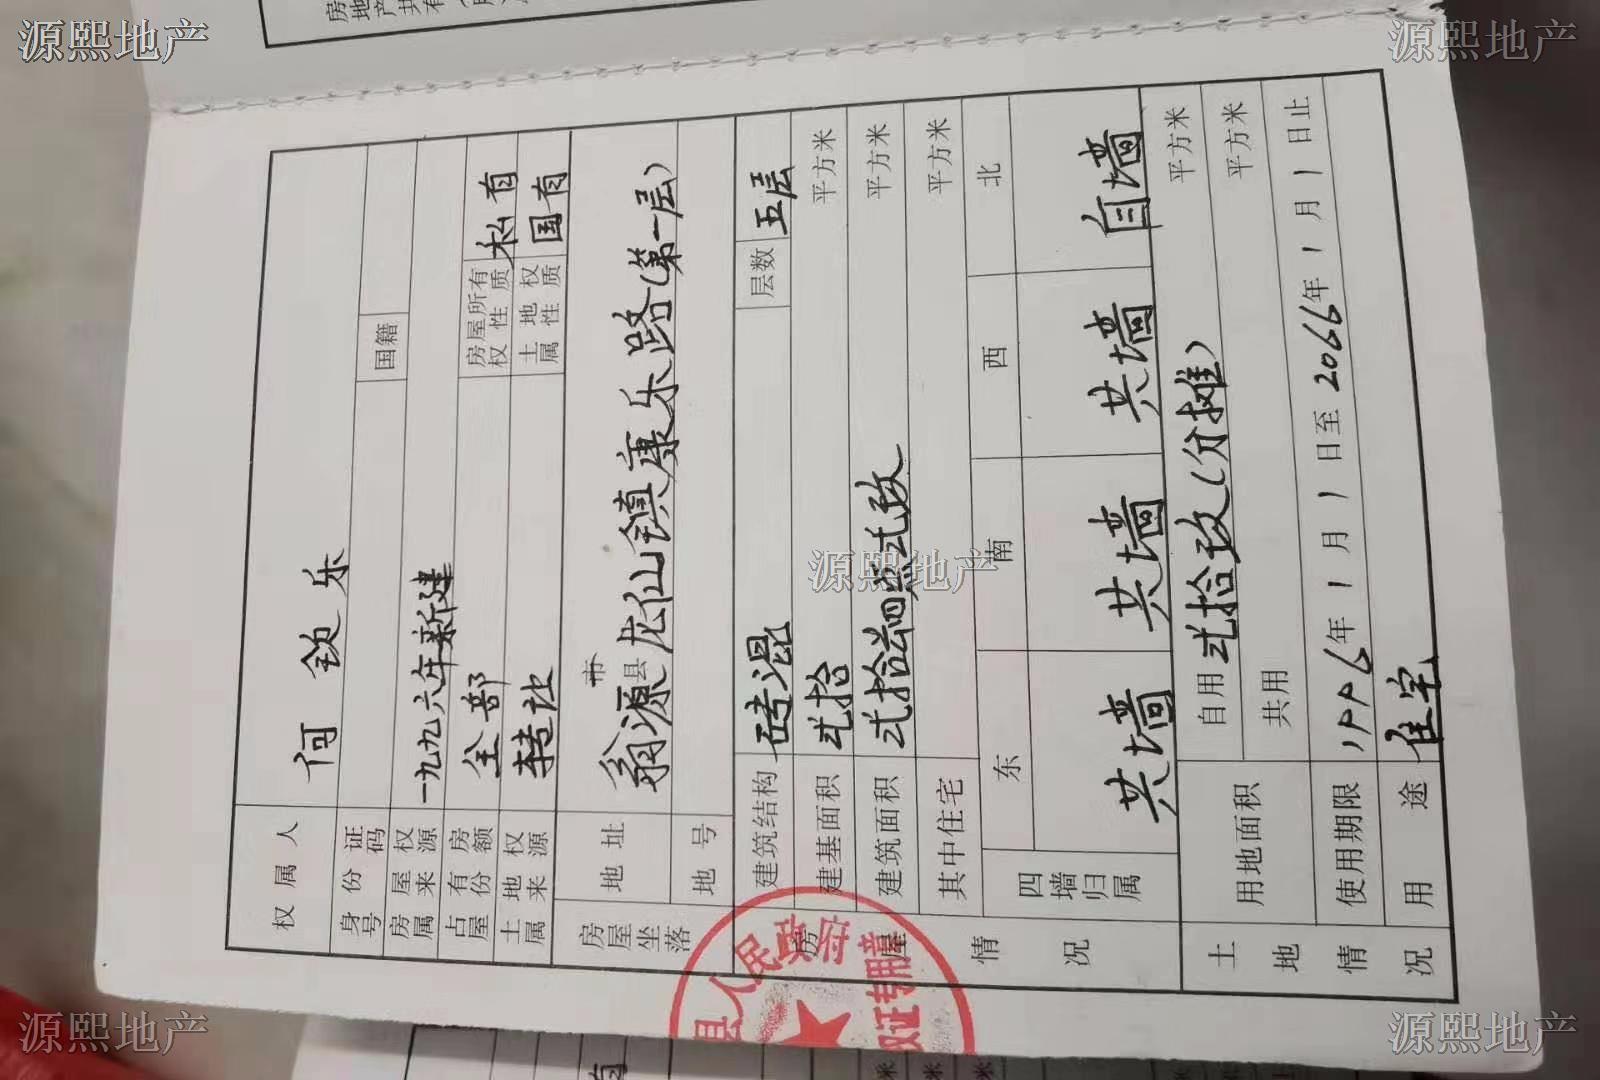 源熙地产
源熙地产
房地产共有
权属人 何 钦 乐
身份证号码 国籍
房屋权属来源 一九九六年新建
占有房屋份额 全部 房屋所有权性质 私有
土地权属来源 转让 土地权属性质 国有
房屋坐落 地址 翁源 市县 龙仙镇康乐路(第一层)
地号
房屋情况 建筑结构 砖混 层数 五层
建基面积 弍拾 平方米
建筑面积 弍拾四点弍玖 平方米
其中住宅 平方米
四墙归属 东 南 西 北
共墙 共墙 共墙 自墙
土地情况 用地面积 自用 弍拾玖(分摊) 平方米
共用 平方米
使用期限 1996年1月1日至2066年1月1日止
用途 住宅
县人民政府
权证专用章
源熙地产
源熙地产
源熙地产